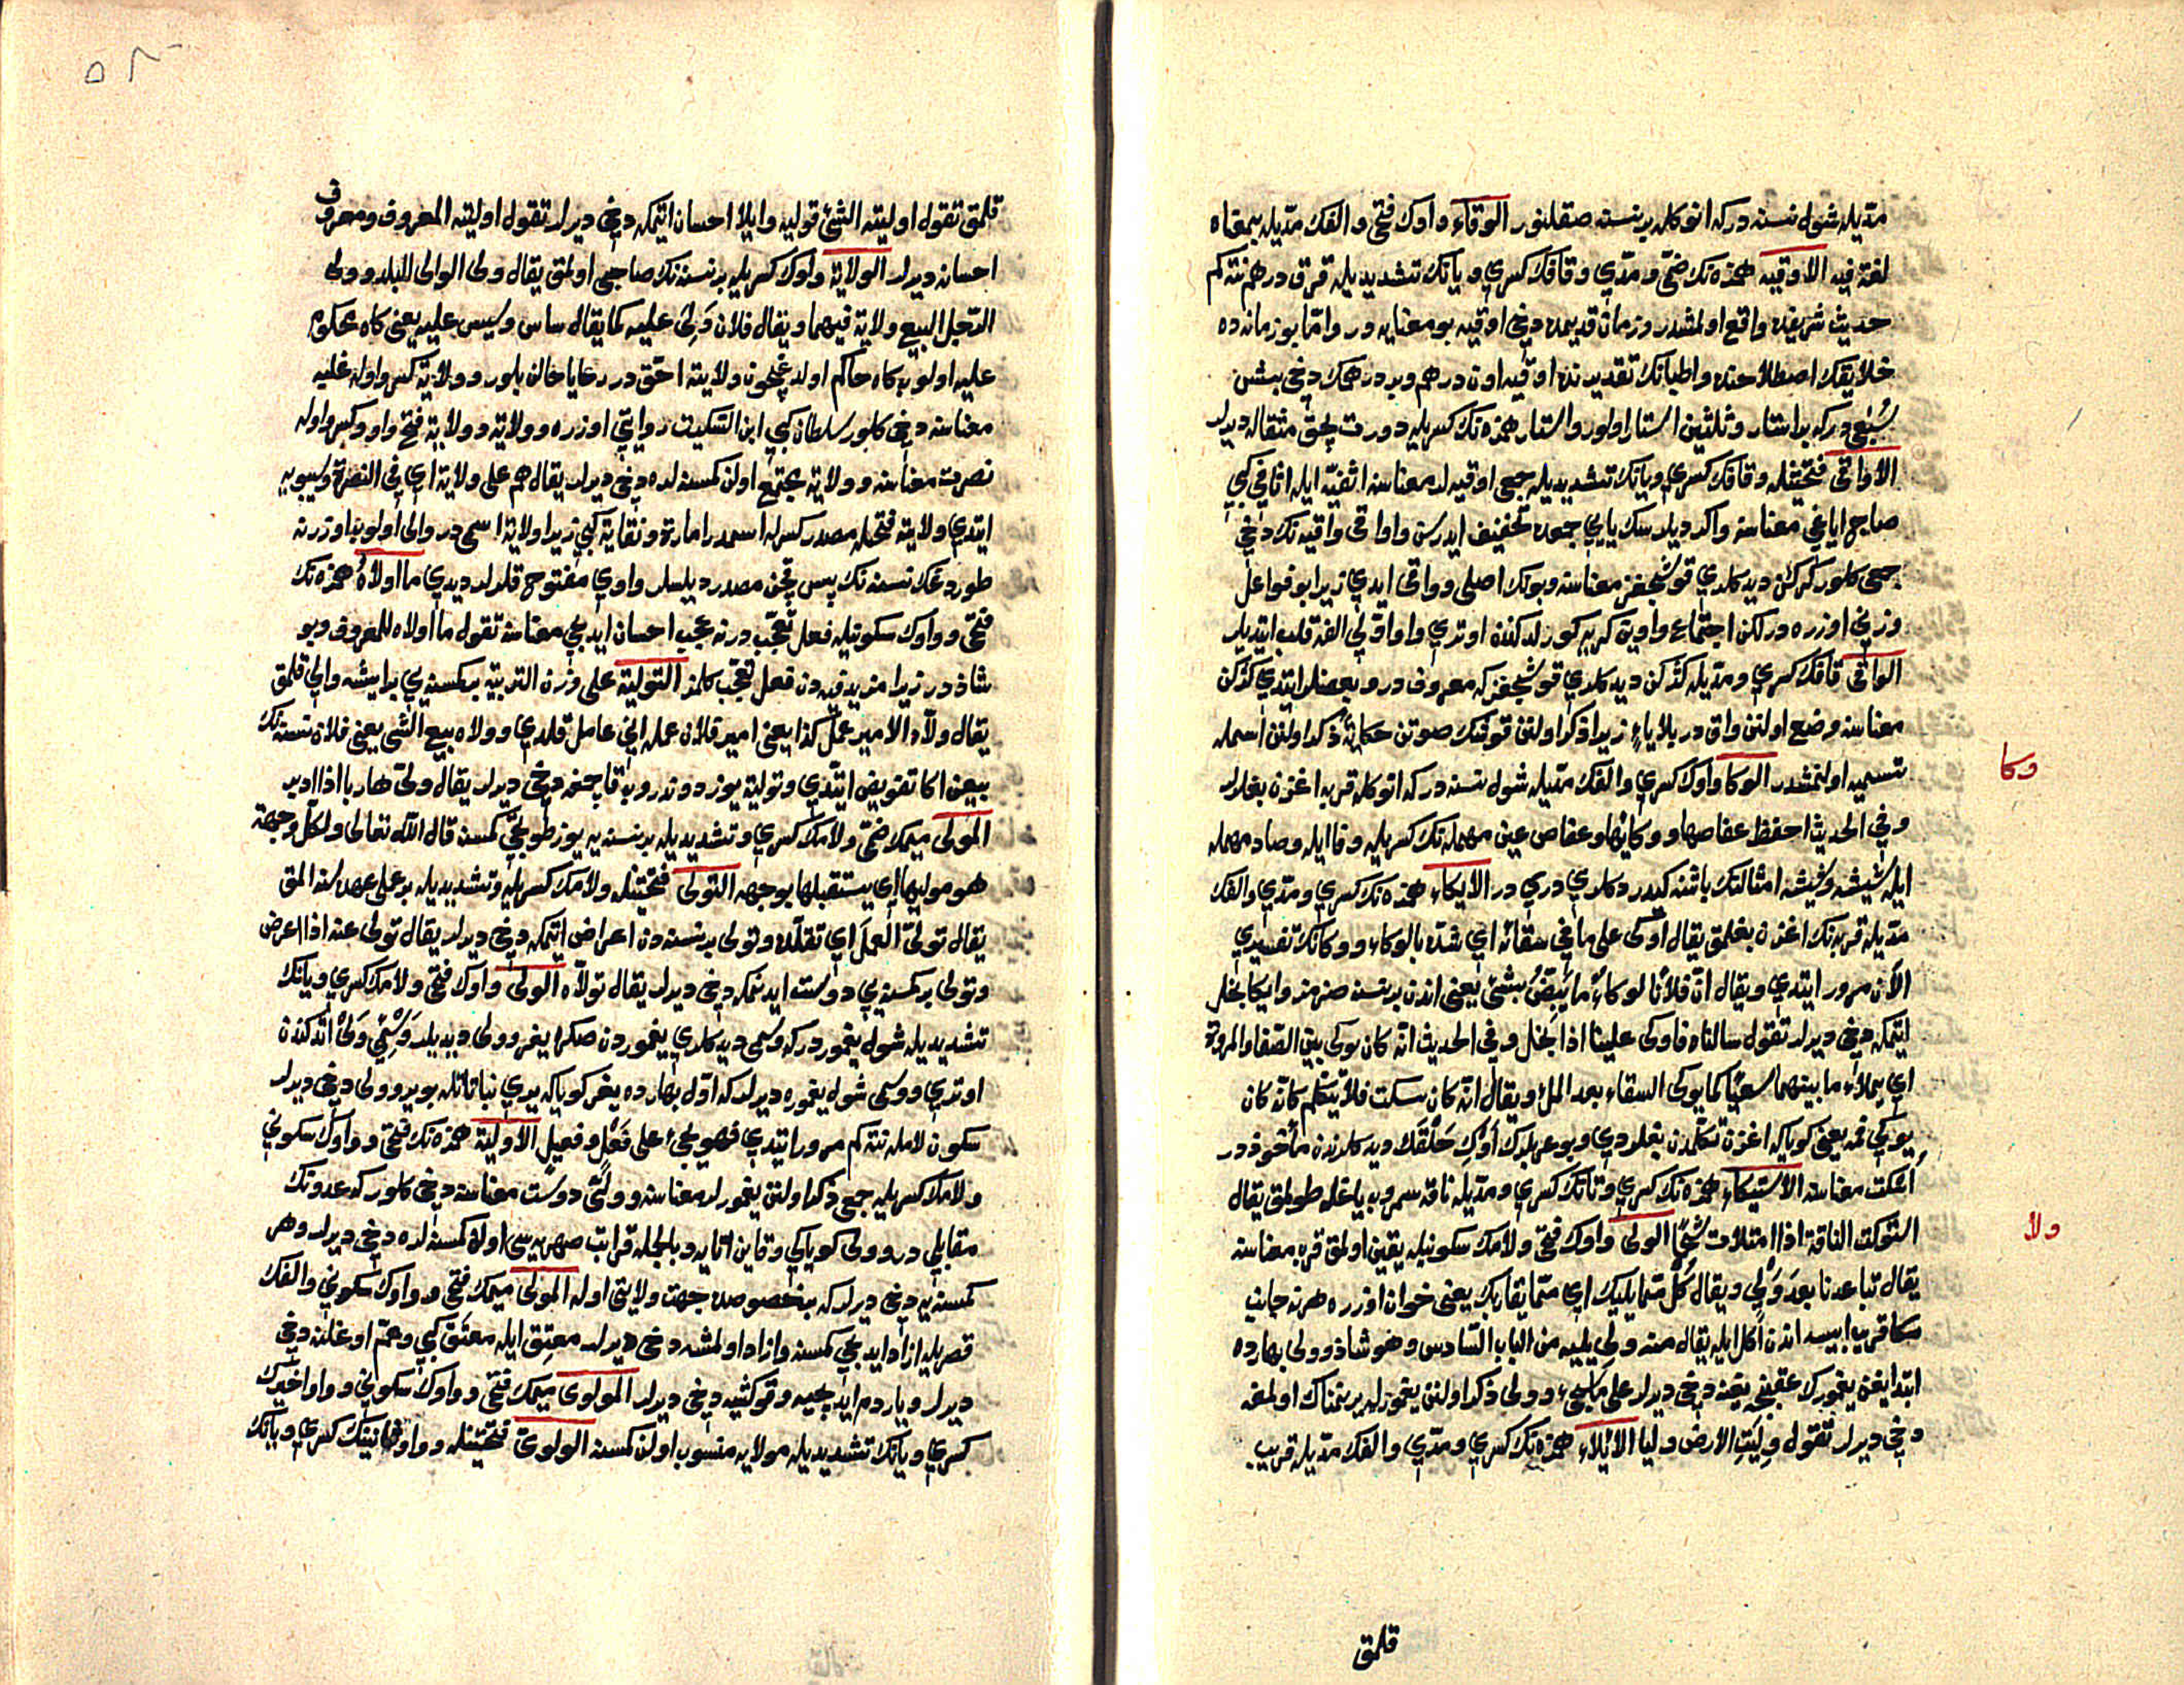 مدّيله شول نسنه دركه انوكله بر نسنه صقلنور الوقاء واوك فتحى والفك مدّيله بمعناه
لغة فيه الاوقيه همزه نك ضمّى ومدّى وقافك كسرى ويانك تشديديله قرق درهم نته كم
حديث شريفده واقع اولمشدر وزمان قديمده دخى اوقيه بو معنايه در وامّا بو زمانده
خلايقك اصطلاحنده واطبانك تقديرنده اوقيه اون درهم وبر درهمك دخى بشن
سُبْعى در كه بر استار وثلثين استار اولور واستار همزه نك كسريله دورت بچق مثقاله ديرلر
الاواقى فتحتينله وقافك كسرى ويانك تشديديله جمعى اوقيه لر معناسنه اثفيّة ايله اثافى كبى
صاج اياغى معناسنه واكر ديلرسك يايى جمعده تخفيف ايدرسن واواقى واقيه نك دخى
جمعى كلور كركن ديدكلرى قوشجغز معناسنه وبونك اصلى وواقى ايدى زيرا بو فواعل
وزنى اوزره در لكن اجتماع واوينى كريه كوردكلرندن اوترى واو اوّلى الفه قلب ايتديلر
الواقى قافك كسرى ومدّيله كركن ديدكلرى قوشجغز كه معروفدر وبعضلر ايتدى كركن
معناسنه وضع اولنن واق در بلا ياءٍ زيرا ذكر اولنن قوشك صوتن حكايةً ذكر اولنن اسمله
تسميه اولنمشدر الوكا واوك كسرى والفك مدّيله شول نسنه در كه انوكله قربه اغزن بغلرلر
وفى الحديث احفظ عفاصها ووكائها وعفاص عين مهمله نك كسريله وفا ايله وصاد مهمله
ايله شيشه وشيشه امثالنك باشنه كيدردكلرى درى در الايكاء همزه نك كسرى ومدّى والفك
مدّيله قربه نك اغزنه بغلمق يقال اوكى على ما فى سقائه اى شدّه بالوكاء ووكانك تفسيرى
الآن مرور ايتدى ويقال انّ فلانا لوكاءٌ ما يبضّ بشئ يعنى اندن بر نسنه صزمز وايكا بخل
ايتمكه دخى ديرلر تقول سالناه فاوكى علينا اذا بخل وفى الحديث انّه كان يوكى بين الصفا والمروة
اى يملاء ما بينهما سعيًا كما يوكى السقاء بعد الملء ويقال انّه كان يسكت فلا يتكلّم كانّه كان
يوكى فمه يعنى كوياكه اغزن تكلّمدن بغلردى وبو عربلرك اَوْكِ حَلْقَك ديدكلرندن مأخوذدر
اُسْكت معناسنه الاستيكاء همزه نك كسرى وتانك كسرى ومدّيله ناقه سمروب ياغله طولمق يقال
استوكت الناقة اذا امتلات شحمًا الولى واوك فتحى ولامك سكونيله يقين اولمق قرب معناسنه
يقال تباعدنا بعد وَلْىٍ ويقال كُلْ ممّا يليك اى ممّا يقاربك يعنى خوان اوزره هر نه جانب
سكا قريب ايسه اندن اكل ايله يقال منه ولِى يليه من الباب السادس وهو شاذ وولى بهارده
ابتدا يغن يغمورك عقبنجه يغنه دخى ديرلر على ماسيجئ وولى ذكر اولنن يغمورله ير نمناك اولمغه
دخى ديرلر تقول وُلِيَتِ الارض وليا الايلاء همزه نك كسرى ومدّى والفك مدّيله قريب
قلمق
وكا
ولا
قلمق تقول اوليته الشئ فوليه وايلا احسان ايتمكه دخى ديرلر تقول اوليته المعروف ومعروف
احسانه ديرلر الولاية واوك كسريله بر نسنه نك صاحبى اولمق يقال ولى الوالى البلد وولى
الرّجل البيع ولاية فيهما ويقال فلان وَلِىَ ووُلِىَ عليه كما يقال ساس وسيس عليه يعنى كاه محكوم
عليه اولوب كاه حاكم اولدغيچون ولايته احقّ در رعايا حالن بلور وولاية كسر واوله غلبه
معناسنه دخى كلور سلطان كبى ابن السّكيت روايتى اوزره وولاية وولاية فتح واو وكسر واوله
نصرت معناسنه وولاية مجتمع اولن كمسنه لره دخى ديرلر يقال هم على ولاية اى فى النصرة وسيبويه
ايتدى ولاية فتحله مصدر كسرله اسمدر امارة ونقاية كبى زيرا ولاية اسمى در والى اولوب اوزرنه
طوردغك نسنه نك پس قچن مصدر ديلسلر واوى مفتوح قلرلر ديدى ما اولاهُ همزه نك
فتحى وواوك سكونيله فعل تعجّب در نه عجب احسان ايديجى معناسنه تقول ما اولاه للمعروف وبو
شاذدر زيرا مزيد فيه دن فعل تعجّب كلمز التولية على وزن التربية بر كمسنه يى بر ايشه والى قلمق
يقال ولّاه الامير عمل كذا يعنى امير فلان عمله انى عامل قلدى وولاه بيع الشى يعنى فلان نسنه نك
بيعن اكا تفويض ايتدى وتولية يوز دوندروب قاچمغه دخى ديرلر يقال ولّى هاربا اذا ادبر
المولّى ميمك ضمّى ولامك كسرى وتشديديله بر نسنه يه يوز طوتجى كمسنه قال الله تعالى ولكلّ وجهة
هو مولّيها اى يستقبلها بوجهه التولّى فتحتينله ولامك كسريله وتشديديله بر عمل عهده سنه المق
يقال تولّى العمل اى تقلّده وتولى بر نسنه دن اعراض ايتمكه دخى ديرلر يقال تولى عنه اذا اعرض
وتولى بر كمسنه يى دوست ايدنمكه دخى ديرلر يقال تولّاه الولى واوك فتحى ولامك كسرى ويانك
تشديديله شول يغمور در كه وسمى ديدكلرى يغموردن صكره يغر وولى ديديلر وسْمِىْ وَلْىْ اتدكندن
اوترى ووسمى شول يغموره ديرلر كه اوّل بهارده يغر كوياكه يرى نباتاتله بويرو ولى دخى ديرلر
سكون لامله نته كم مرور ايتدى فهو يجئ على فَعْلٍ وفعيل الاولية همزه نك فتحى وواوك سكونى
ولامك كسريله جمعى ذكر اولنن يغمورلر معناسنه وولىّ دوست معناسنه دخى كلور كه عدونك
مقابلى در وولى كوياكى وقاين اتايه وبالجمله قرابت صهريه سى اولان كمسنه لره دخى ديرلر وهر
كمسنه يه دخى ديرلر كه بر خصوصده جهت ولايتى اوله المولى ميمك فتحى وواوك سكونى والفك
قصريله ازاد ايديجى كمسنه وازاد اولمشه دخى ديرلر معتِق ايله معتَق كبى وعمّ اوغلنه دخى
ديرلر وياردم ايديجيه وقوكشيه دخى ديرلر المولوى ميمك فتحى وواوك سكونى وواو اخيرك
كسرى ويانك تشديديله مولايه منسوب اولن كمسنه الولوىّ فتحتينله وواو ثانينك كسرى ويانك